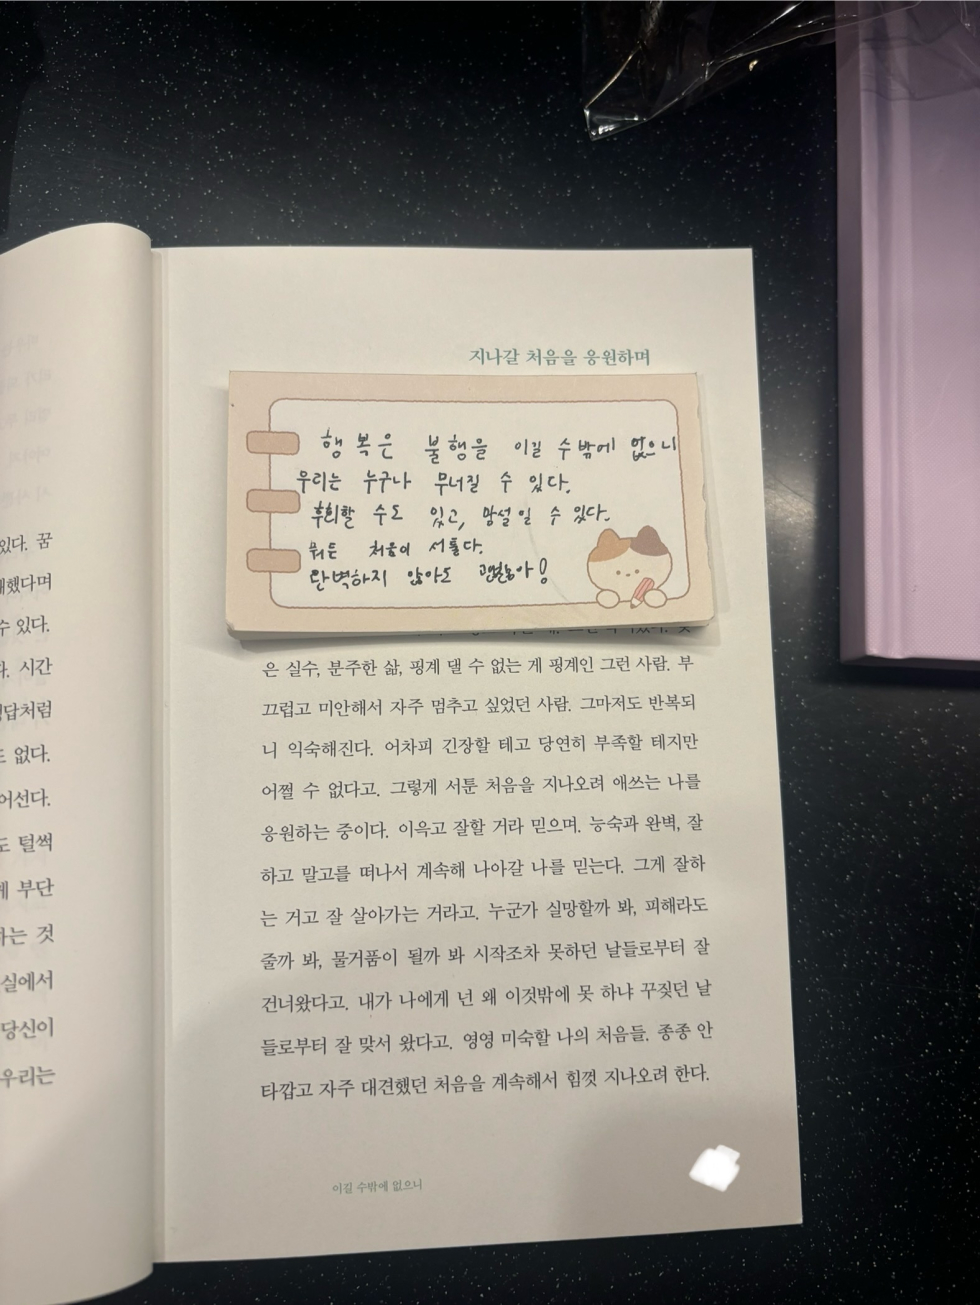 있다. 꿈
했다며
수 있다.
시간
답처럼
없다.
어선다.
도 털썩
부단
하는 것
실에서
당신이
우리는
지나갈 처음을 응원하며
행복은 불행을 이길 수밖에 없으니
우리는 누구나 무너질 수 있다.
후회할 수도 있고, 망설일 수 있다.
뭐든 처음이 서툴다.
완벽하지 않아도 괜찮아!
은 실수, 분주한 삶, 핑계 댈 수 없는 게 핑계인 그런 사람. 부
끄럽고 미안해서 자주 멈추고 싶었던 사람. 그마저도 반복되
니 익숙해진다. 어차피 긴장할 테고 당연히 부족할 테지만
어쩔 수 없다고. 그렇게 서툰 처음을 지나오려 애쓰는 나를
응원하는 중이다. 이윽고 잘할 거라 믿으며. 능숙과 완벽, 잘
하고 말고를 떠나서 계속해 나아갈 나를 믿는다. 그게 잘하
는 거고 잘 살아가는 거라고. 누군가 실망할까 봐, 피해라도
줄까 봐, 물거품이 될까 봐 시작조차 못하던 날들로부터 잘
건너왔다고. 내가 나에게 넌 왜 이것밖에 못 하냐 꾸짖던 날
들로부터 잘 맞서 왔다고. 영영 미숙할 나의 처음들. 종종 안
타깝고 자주 대견했던 처음을 계속해서 힘껏 지나오려 한다.
이길 수밖에 없으니